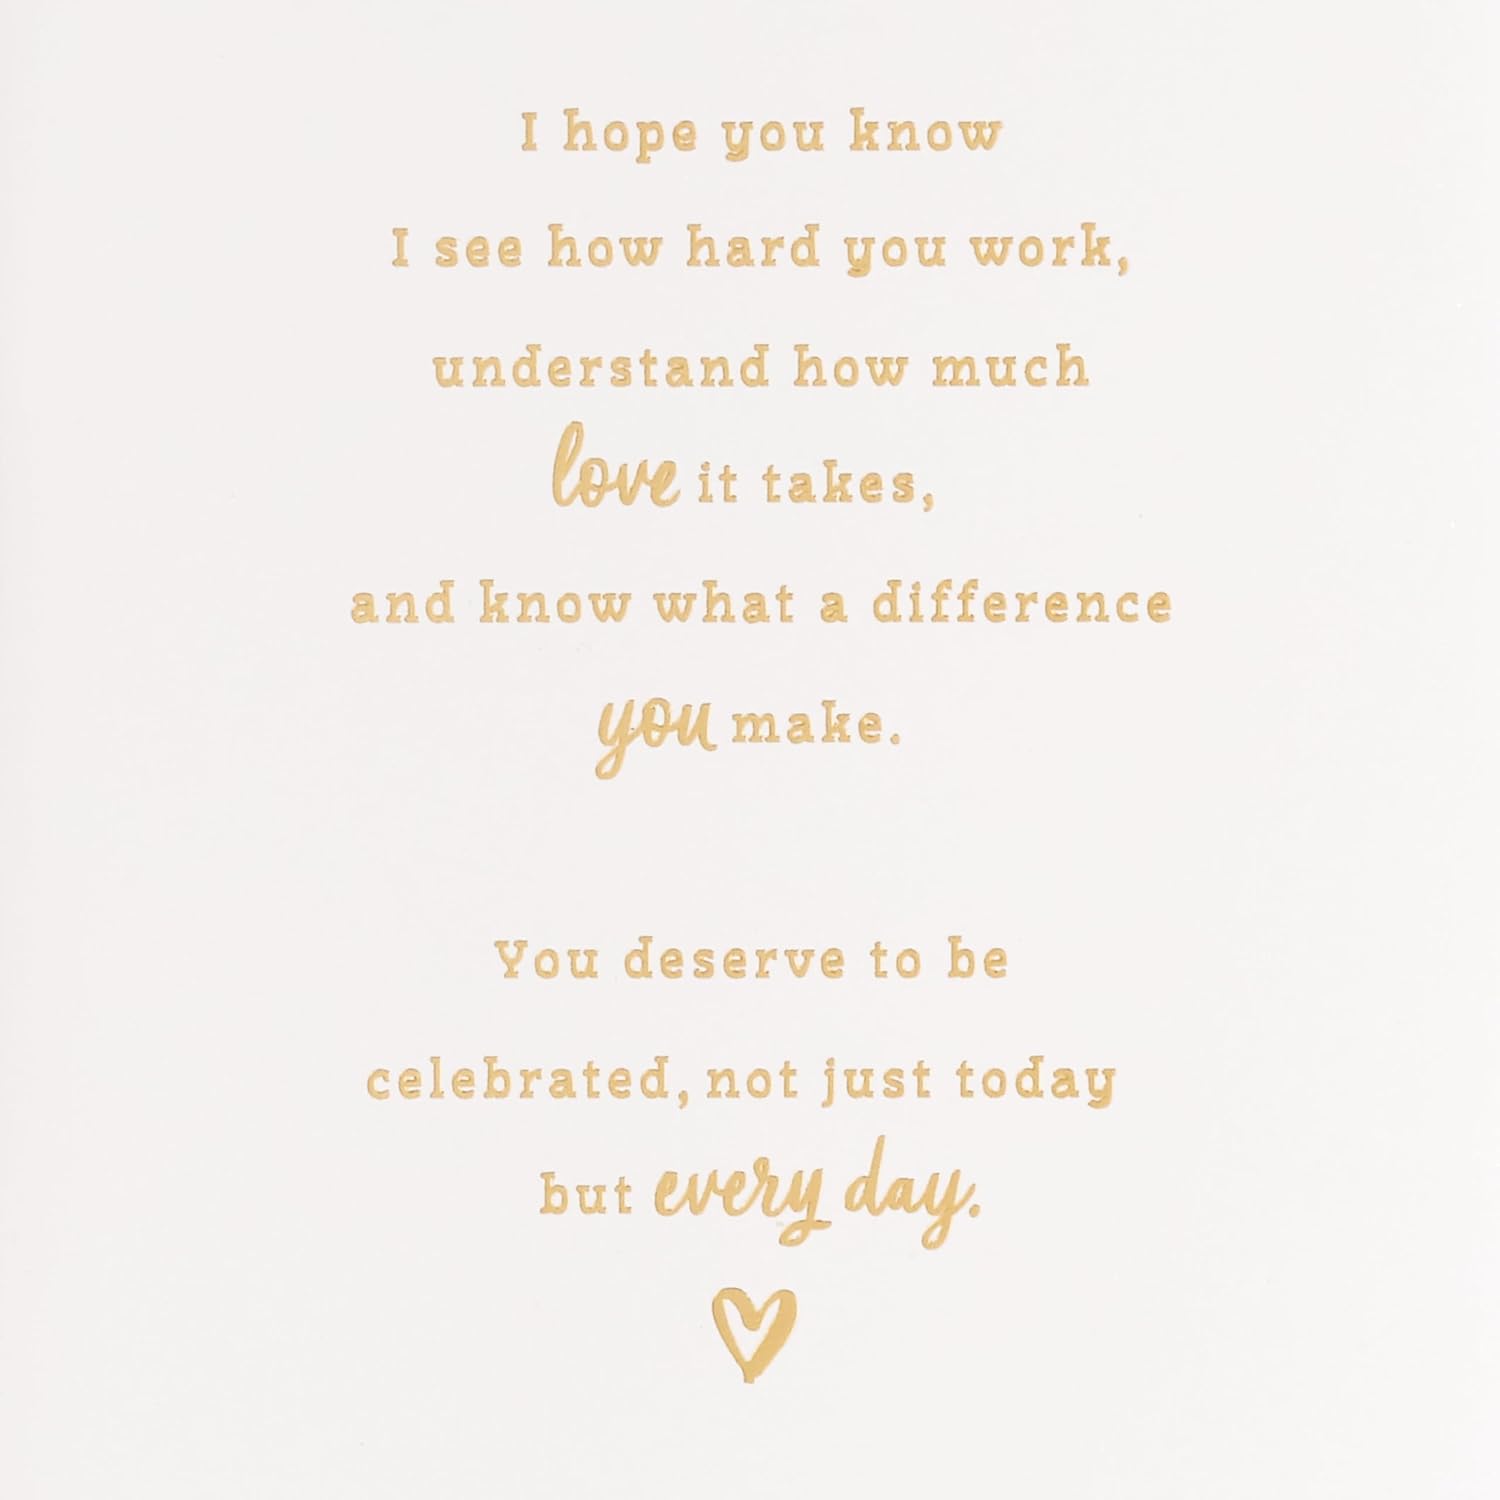 I hope you know
I see how hard you work,
understand how much
love it takes,
and know what a difference
you make.
You deserve to be
celebrated, not just today
but every day.